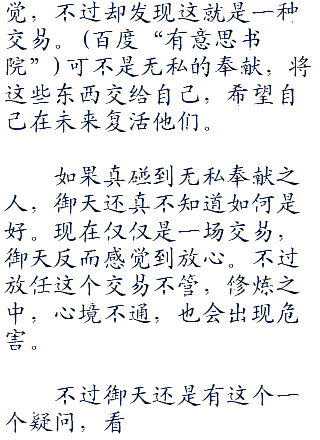 觉，不过却发现这就是一种
交易。(百度“有意思书
院”)可不是无私的奉献，将
这些东西交给自己，希望自
己在未来复活他们。
如果真碰到无私奉献之
人，御天还真不知道如何是
好。现在仅仅是一场交易，
御天反而感觉到放心。不过
放任这个交易不管，修炼之
中，心境不通，也会出现危
害。
不过御天还是有这个一
个疑问，看